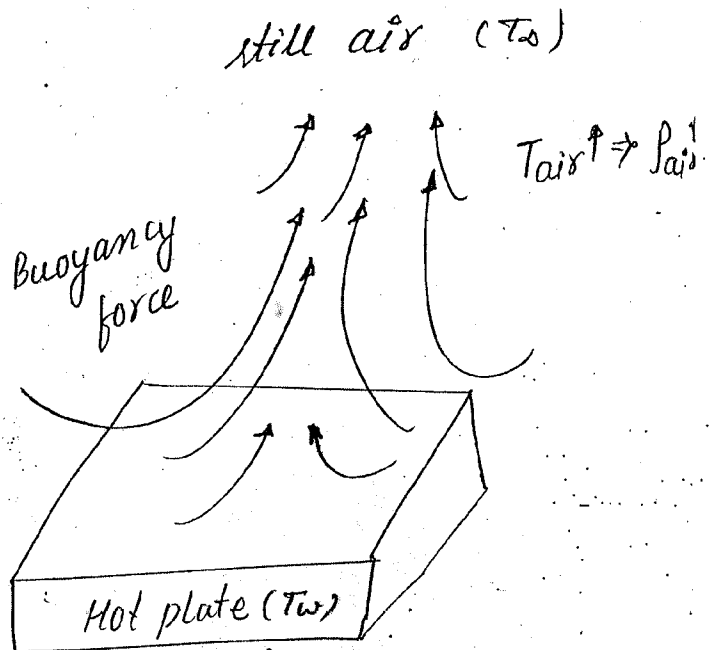 still air (T∞)
Tair↑ ⇒ ρair
Buoyancy
force
Hot plate (Tw)